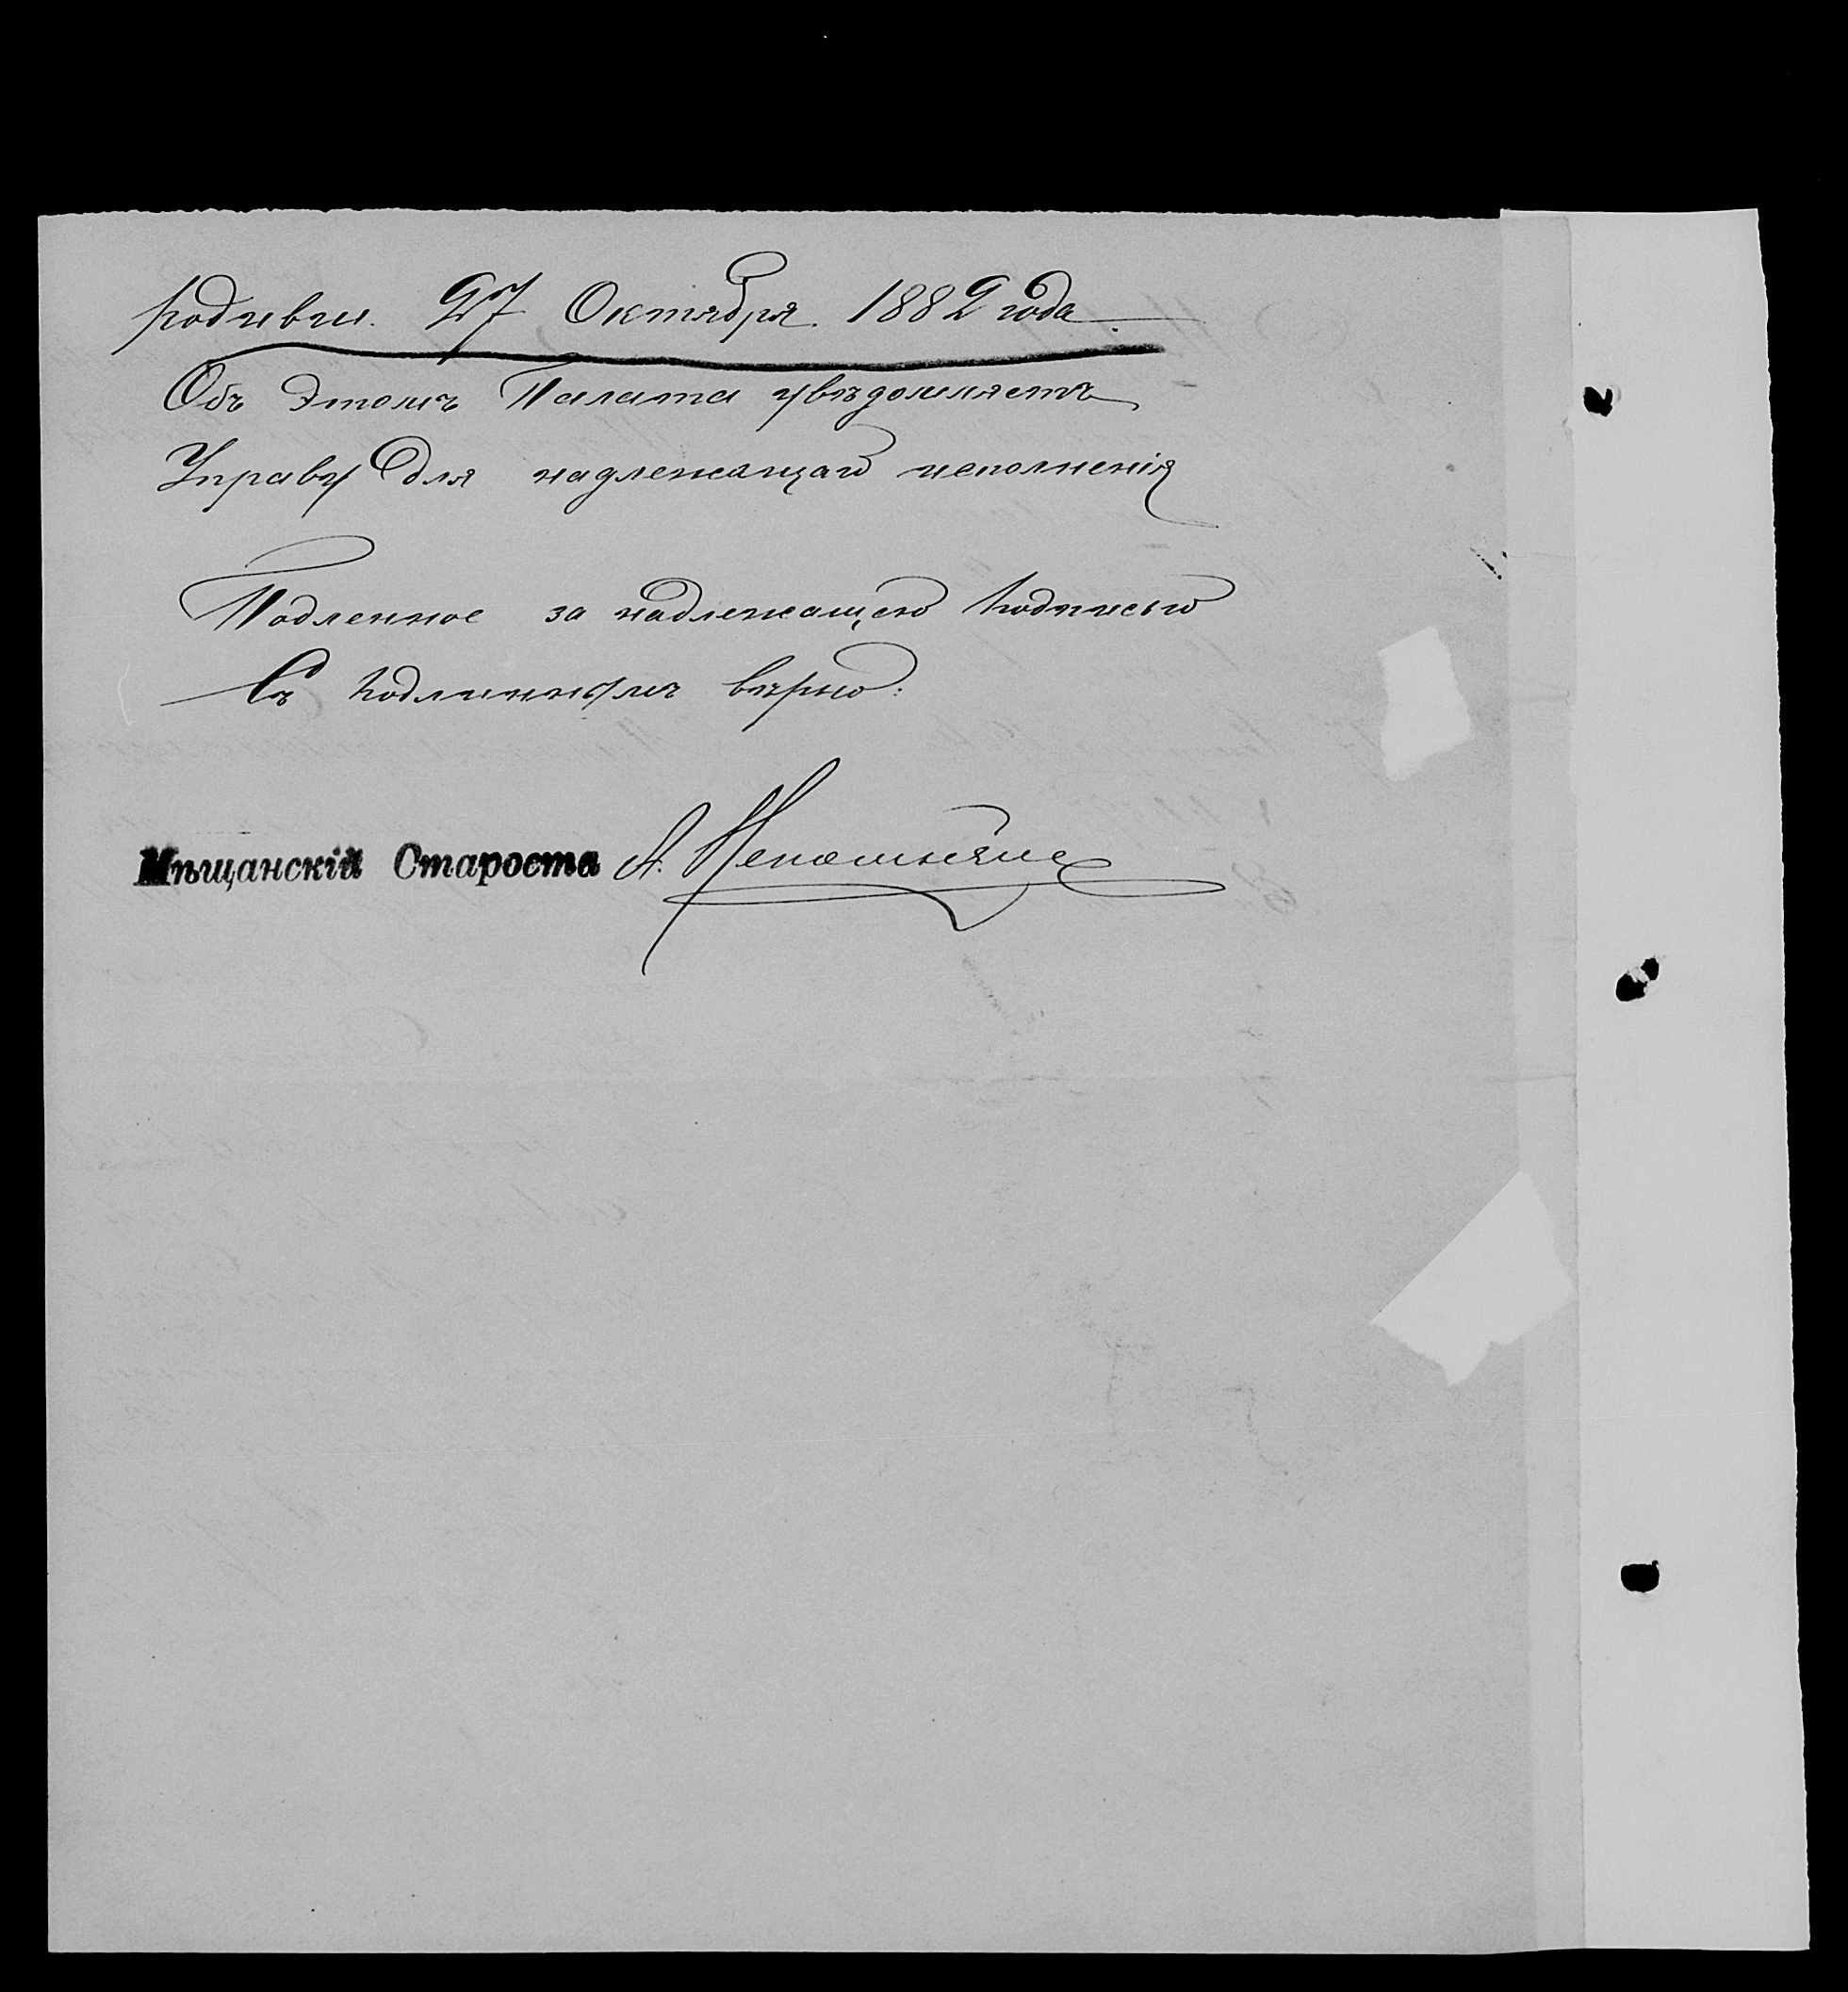 родивш. 27 Октября 1882 года
Объ этомъ Палата увѣдомляетъ
Управу для надлежащаго исполненія
Подленное за надлежащею подписью
Съ подлиннымъ вѣрно:
Мѣщанскій Староста А.